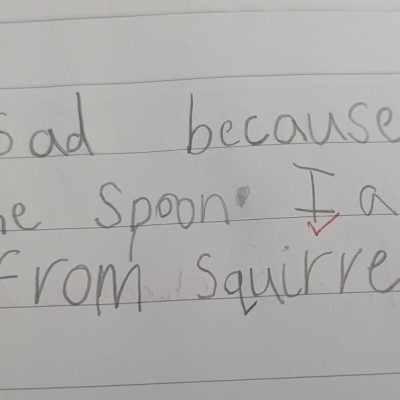 sad because
he spoon. I a
from squirre